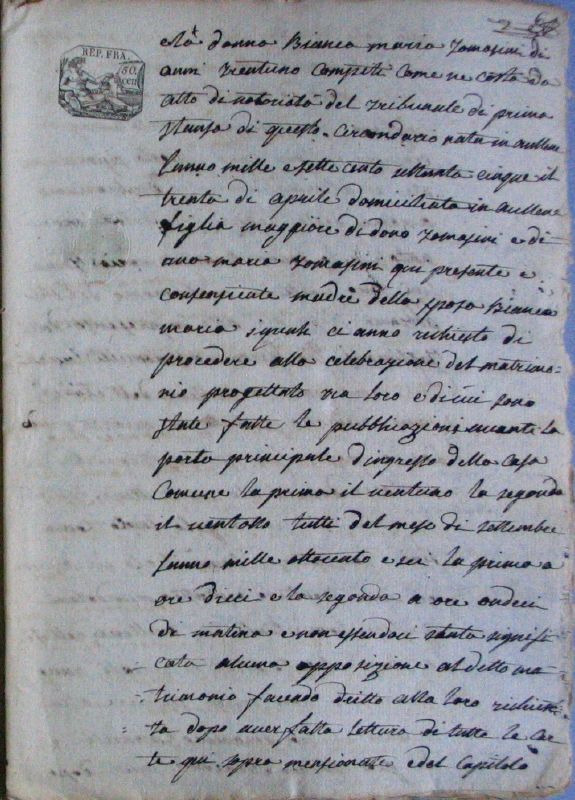 REP. FRA.
50.
cen
e la donna Bianca maria Tomasini di
anni trentuno compiti come ne costa da
atto di notorietà del Tribunale di prima
stanza di questo Circondario nata in aullene
l'anno mille e sette cento settanta cinque il
trenta di aprile domiciliata in aullene
figlia maggiore di dono Tomasini e di
maria Tomasini qui presente e
consenziente madre della sposa Bianca
maria i quali ci anno richiesto di
procedere alla celebrazione del matrimo-
nio progettato tra loro e di cui sono
state fatte le pubblicazioni avanti la
porta principale d'ingresso della Casa
Comune la prima il ventuno la segonda
il ventotto tutti del mese di settembre
l'anno mille ottocento e sei la prima a
ore dieci e la segonda a ore undeci
di matina e non essendoci stata signifi
cata alcuna opposizione al detto ma
trimonio facendo dritto alla loro richies
ta dopo aver fatta lettura di tutte le car
te qui sopra mensionate e del Capitolo